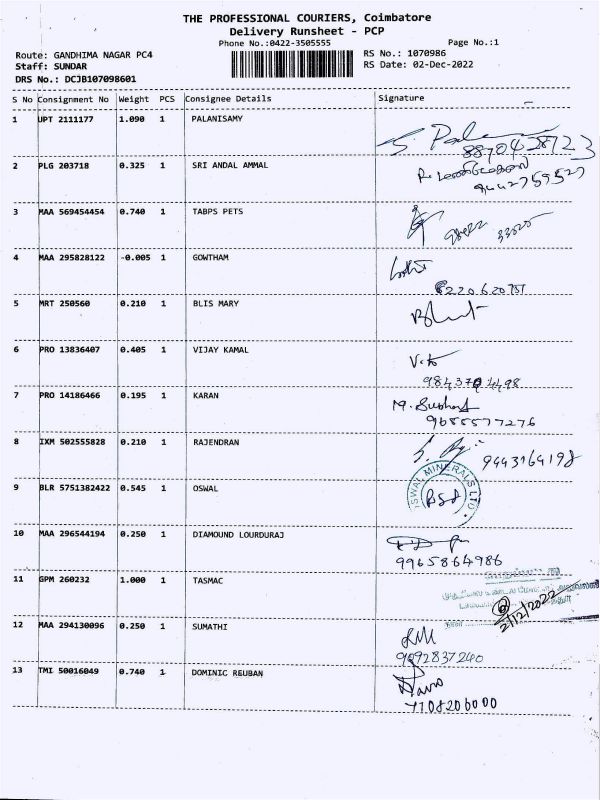 THE PROFESSIONAL COURIERS, Coimbatore
Delivery Runsheet - PCP
Phone No.:0422-3505555 Page No.:1
Route: GANDHIMA NAGAR PC4 RS No.: 1070986
Staff: SUNDAR RS Date: 02-Dec-2022
DRS No.: DCJB107098601
S No Consignment No Weight PCS Consignee Details Signature
1 UPT 2111177 1.090 1 PALANISAMY
8870428723
2 PLG 203718 0.325 1 SRI ANDAL AMMAL
9442759527
3 MAA 569454454 0.740 1 TABPS PETS
4 MAA 295828122 -0.005 1 GOWTHAM
5 MRT 250560 0.210 1 BLIS MARY
6 PRO 13836407 0.405 1 VIJAY KAMAL
7 PRO 14186466 0.195 1 KARAN
9655577276
8 IXM 502555828 0.210 1 RAJENDRAN
9443164198
9 BLR 5751382422 0.545 1 OSWAL
OSWAL MINERALS LTD
10 MAA 296544194 0.250 1 DIAMOUND LOURDURAJ
9965864986
11 GPM 260232 1.000 1 TASMAC
2/12/2022
12 MAA 294130096 0.250 1 SUMATHI
9092837240
13 TMI 50016049 0.740 1 DOMINIC REUBAN
7708206000